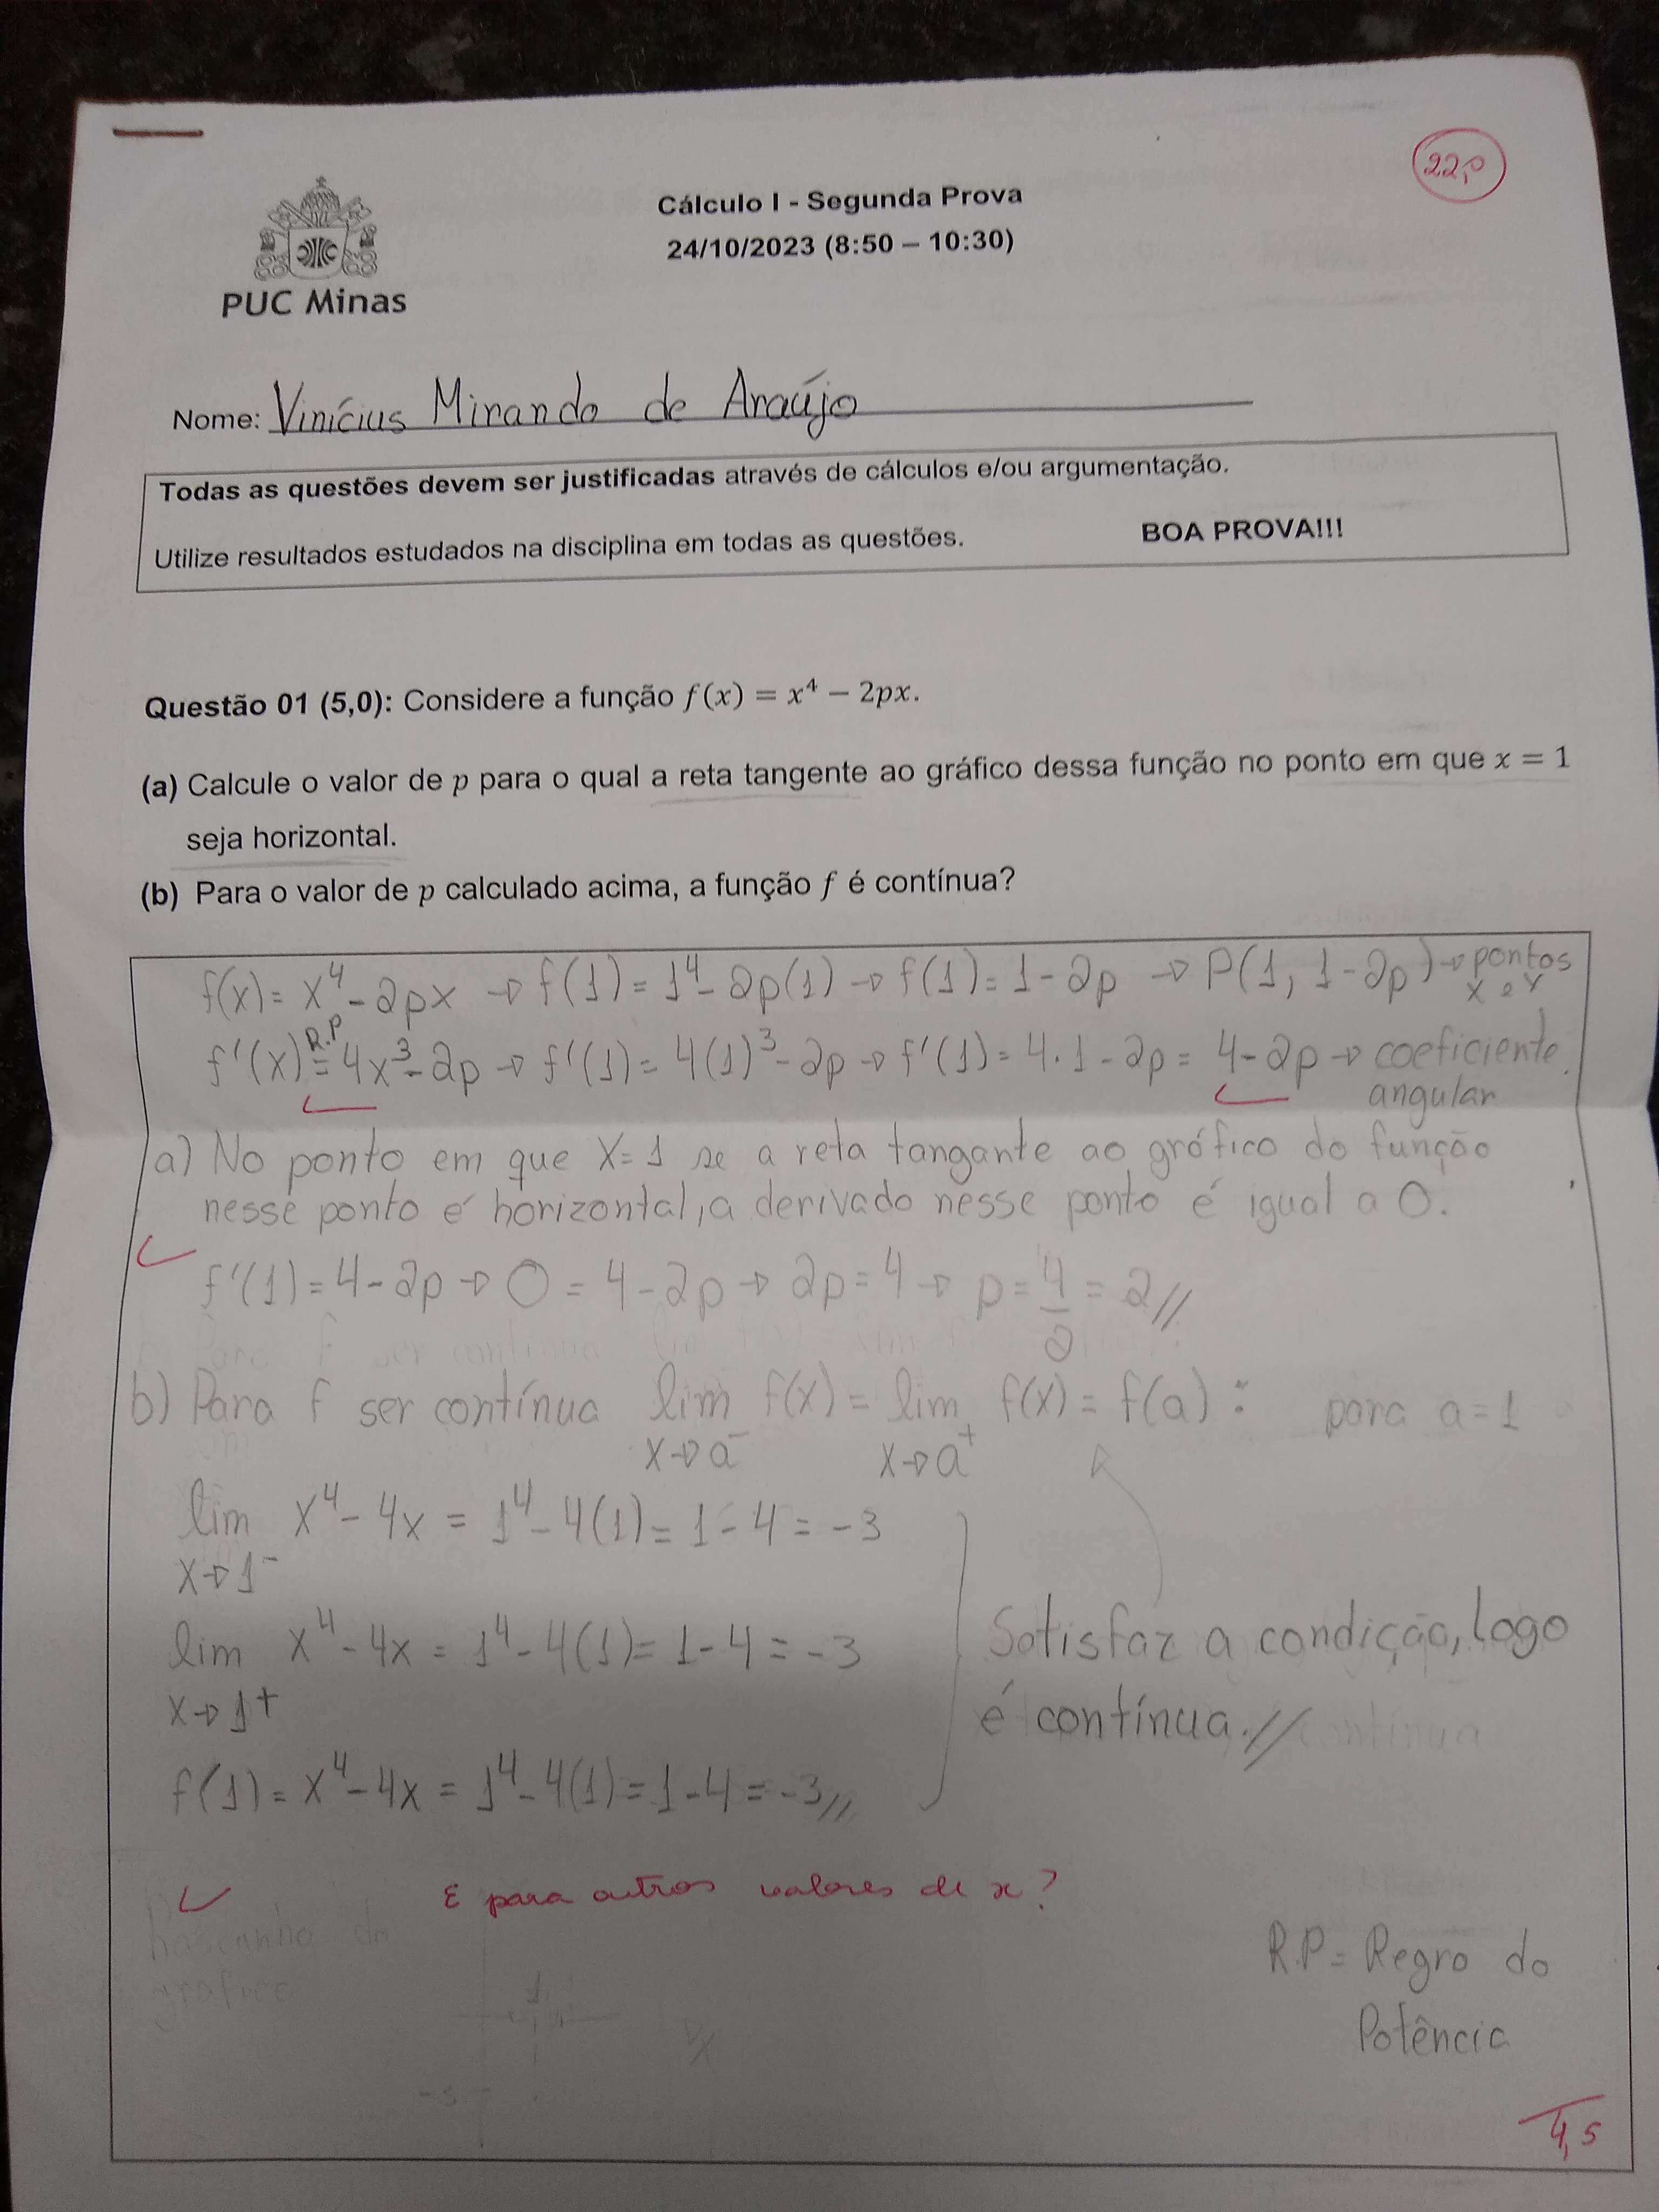 22,0
Cálculo I - Segunda Prova
24/10/2023 (8:50 – 10:30)
PUC Minas
Nome: Vinícius Miranda de Araújo
Todas as questões devem ser justificadas através de cálculos e/ou argumentação.
Utilize resultados estudados na disciplina em todas as questões. BOA PROVA!!!
Questão 01 (5,0): Considere a função f(x) = x⁴ − 2px.
(a) Calcule o valor de p para o qual a reta tangente ao gráfico dessa função no ponto em que x = 1
seja horizontal.
(b) Para o valor de p calculado acima, a função f é contínua?
f(x) = x⁴ - 2px → f(1) = 1⁴ - 2p(1) → f(1) = 1 - 2p → P(1, 1 - 2p) → pontos
x e y
R.P
f'(x) = 4x³ - 2p → f'(1) = 4(1)³ - 2p → f'(1) = 4·1 - 2p = 4 - 2p → coeficiente
angular
a) No ponto em que X = 1 se a reta tangante ao gráfico da função
nesse ponto é horizontal, a derivada nesse ponto é igual a 0.
f'(1) = 4 - 2p → 0 = 4 - 2p → 2p = 4 → p = 4/2 = 2//
b) Para f ser contínua lim f(x) = lim f(x) = f(a) : para a = 1
x → a⁻ x → a⁺
lim x⁴ - 4x = 1⁴ - 4(1) = 1 - 4 = -3
x → 1⁻
lim x⁴ - 4x = 1⁴ - 4(1) = 1 - 4 = -3
x → 1⁺
Satisfaz a condição, logo
é contínua.//
f(1) = x⁴ - 4x = 1⁴ - 4(1) = 1 - 4 = -3//
E para outros valores de x?
R.P = Regra da
Potência
4,5